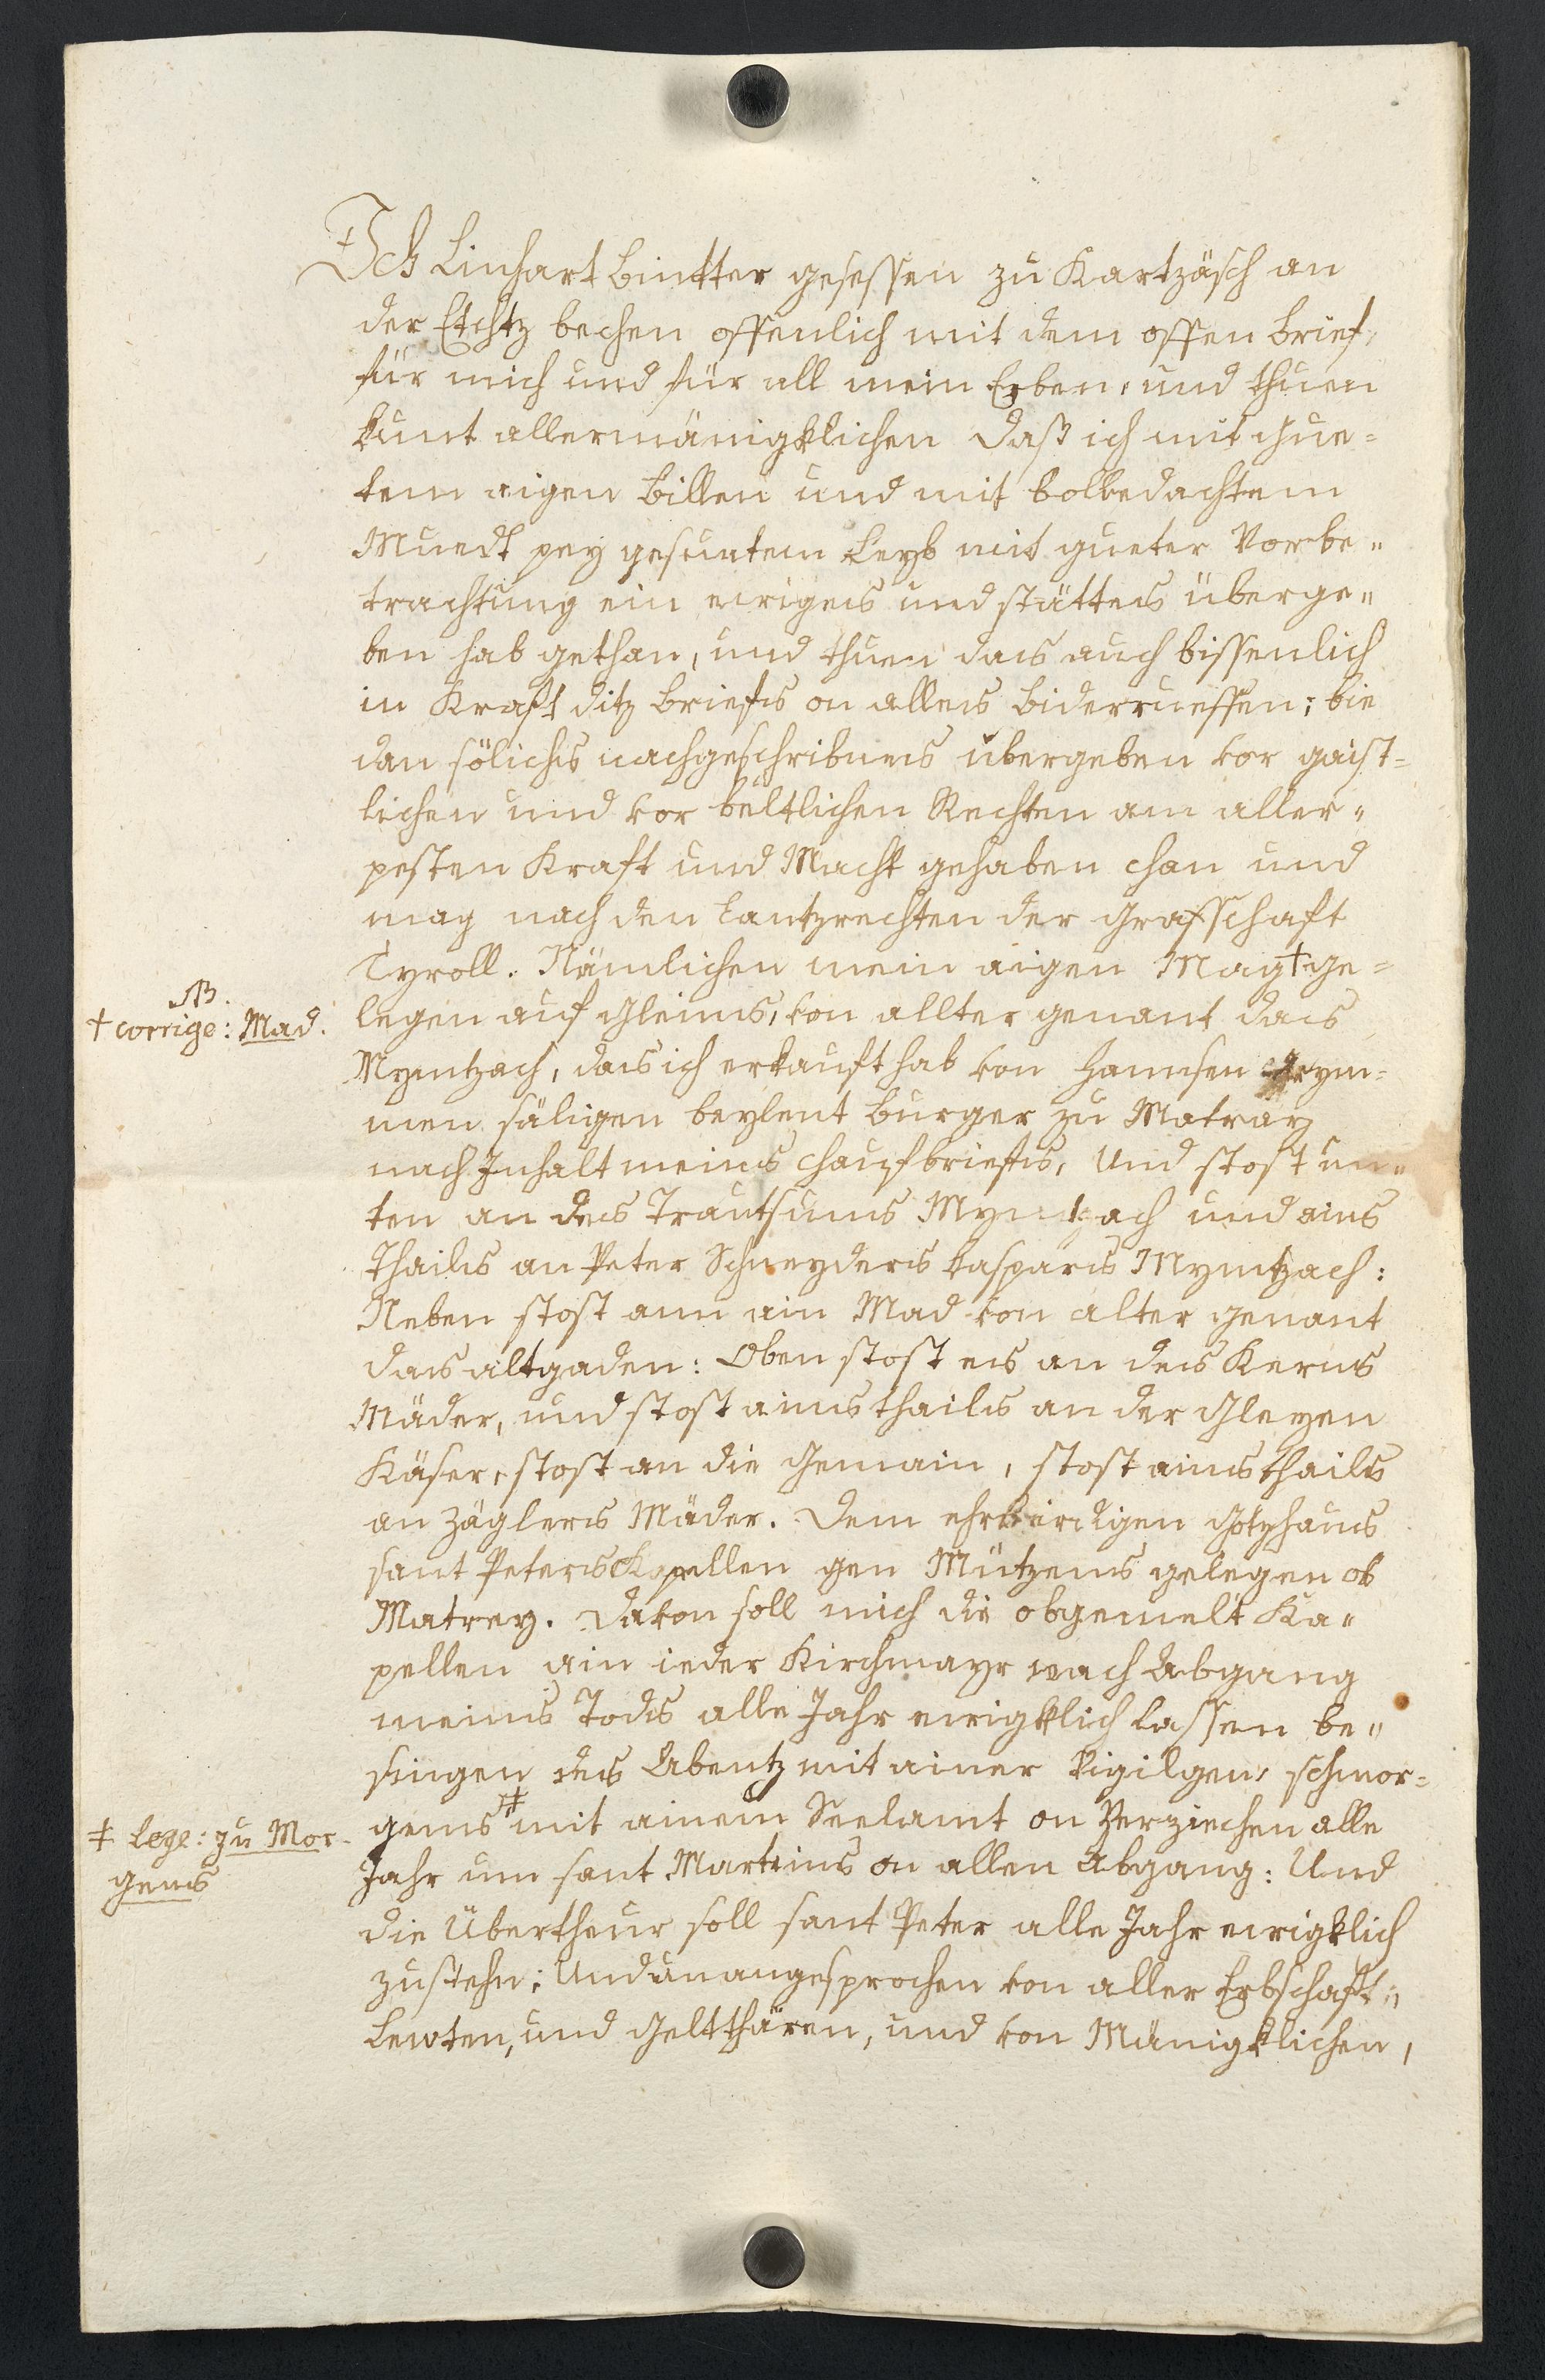 Ich Linhart Bintter gesessen zu Kartzäsch an
der Etchtz bechen offenlich mit dem offen brief,
für mich und für all mein Erben, und thuen
kunt allermänigklichen daß ich mit gue=
tem aigen Billen und mit bolbedachtem
Muedt pey gesuntem Leyb mit gueter Vorbe„
trachtung ein ewigeis und stätteis überge„
ben hab gethan, und thuen dais auch bissenlich
in Kraft ditz briefis on alleis biderrueffen; bie
dan sölichs nachgeschribneis übergeben kor gaist=
lichen und kor beltlichen Rechten am aller„
pesten Kraft und Macht gehaben chan und
mag nach den Lantzrechten der Grafschaft
Tyroll. Nämlichen mein aigen Mag † ge=
NB.
† corrige: Mad.
legen auf Gleinis, kon allter genant dais
Mymtzach, dais ich erkauft hab kon Hannsen
men säligen beylent burger zu Matray
nach Inhalt meinis chaufbriefis, Und stost un„
ten an deis Trautsums Mymtzach und ains
thailis an Peter Schneyderis Casparis Mymtzach:
Neben stost ann ain Mad kon alter genant
dais altgaden: Oben stost eis an deis Kerns
Mäder, und stost ainis thailis an der Gleyen
Käser, stost an die Gemain, stost ainis thailis
an Zägleris Mäder. Dem ehrbirdigen Gotzhaus
sant Peteris Kapellen gen Mützens gelegen ob
Matrey. Dakon soll mich die obgemelt Ka„
pellen ain ieder Kirchmayr nach Abgang
meinis Todis alle Jahr ewigklich lassen be„
singen deis Abentz mit ainer kigilgen, schmor=
genis ‡ mit ainem Seelamt on Verziechen alle
‡ Lege: zu Mor-
genis
Jahr um sant Martinis on allen Abgang: Und
die Übertheur soll sant Peter alle Jahr ewigklich
zustehn: Und unangesprochen kon aller Erbschaft„
Lewten, und Geltthären, und kon Mänigklichen,